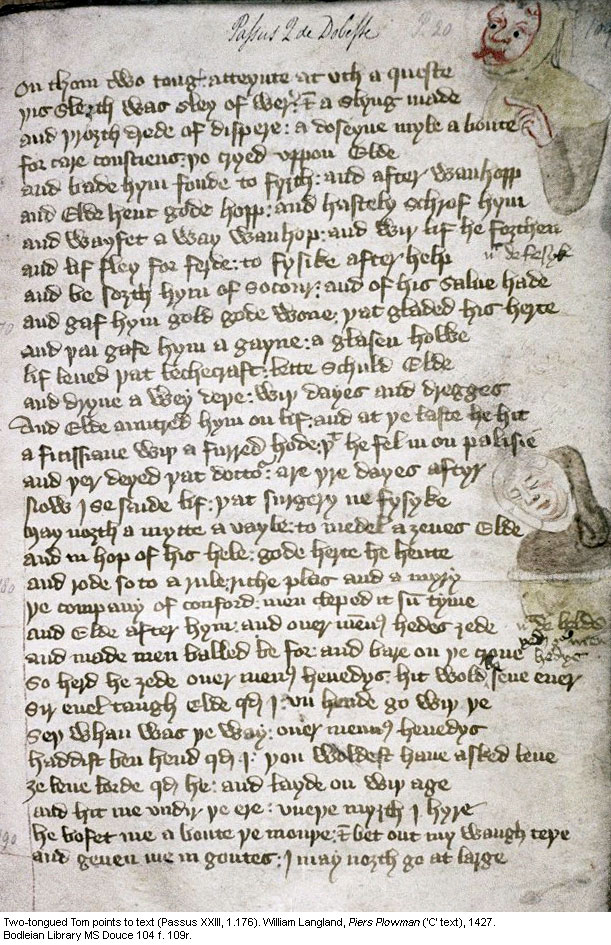 Passus 2 de Dobeste P. 20
On thom two tong: atteynte at vch a queste
þis sleȝth was sley of wer: & a slyng made
and þroȝth drede of dispere: a doseyne myle a boute
for care consciens: þo cryed vppon Elde
and bade hym fonde to fyȝth: and after wanhopp
and Elde hent gode hopp: and hastely schrof hym
and wayfet a way wanhop: and wiþ lif he foȝthen
and lif fley for ferde: to fysike after help
nͣ de fesyk
and be soȝth hym of socour: and of his salue hade
and gaf hym gold gode wone: þat gladed his herte
and þai gafe hym a gayne: a glasen howe
lif leued þat lechecraft: lette schuld Elde
and dryue a wey deþe: wiþ dayes and dregges
And Elde auntred hym on lif: and at þe laste he hit
a ficissiane wiþ a furred hode: þͭ he fel in on palisie
and þer deyed þat doctoͬ: are þre dayes aftyr
now I se saide lif: þat surgery ne fysyke
may noȝth a mytte a vayle: to medel a ȝenes Elde
and in hop of his hele: gode herte he hente
and rode so to a rule: riche plas and a myry
þe company of conford: men cleped it sū tyme
and Elde after hym: and ouer menus hedes ȝede
nͣ de balde
and made men balled be for: and bare on þe croune
hedys
so herd he ȝede ouer menus heuedys: hit wold be sene euer
sir euel taugh Elde qd I: vn hende go wiþ þe
sey whan was þe way: ouer mennus heuedys
haddist ben hend qd I: þou woldest haue asked leue
ȝe leue lorde qd he: and layde on wiþ age
and hit me vndir þe ere: vneþe myȝth I hyre
he bofet me a boute þe mouþe: & bet out my waugh teþe
and geuen me in goutes: I may noȝth go at large
Two-tongued Tom points to text (Passus XXIII, 1.176). William Langland, Piers Plowman ('C' text), 1427.
Bodleian Library MS Douce 104 f. 109r.